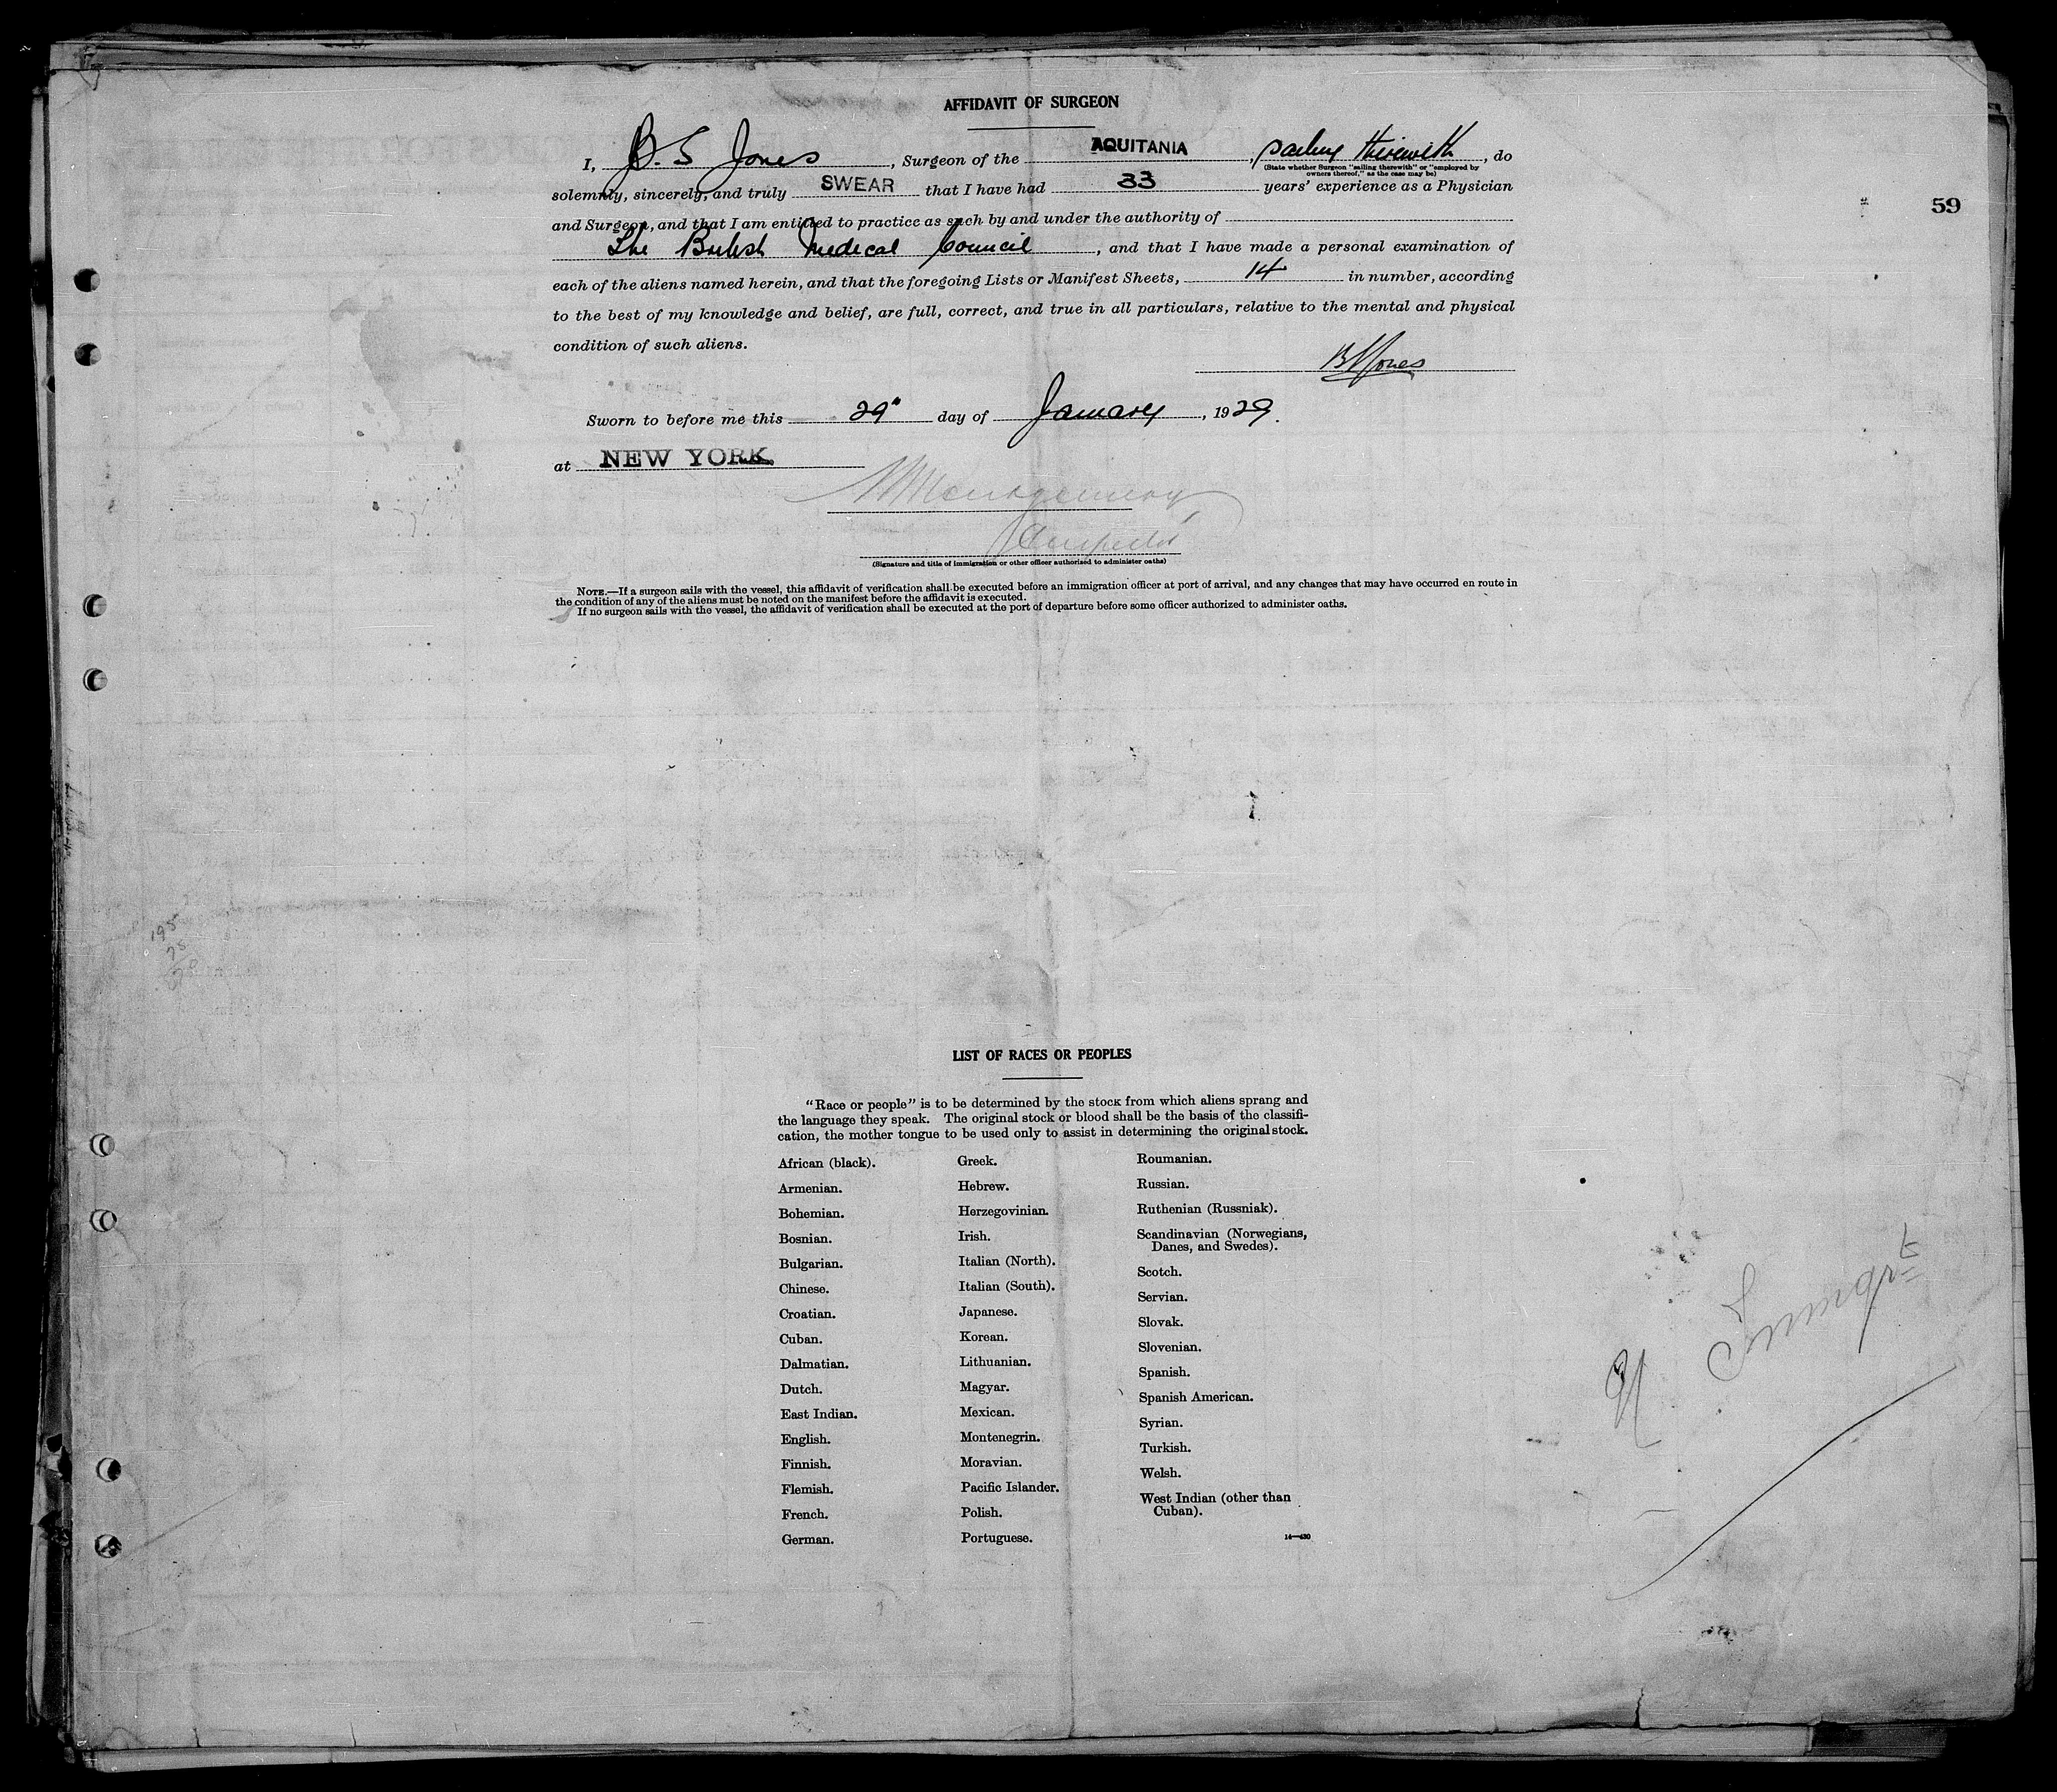 AFFIDAVIT OF SURGEON
I, B. S Jones, Surgeon of the AQUITANIA, sailing therewith, do
(State whether Surgeon "sailing therewith" or "employed by
owners thereof," as the case may be)
solemnly, sincerely, and truly SWEAR that I have had 33 years' experience as a Physician
59
and Surgeon, and that I am entitled to practice as such by and under the authority of
The British Medical Council, and that I have made a personal examination of
each of the aliens named herein, and that the foregoing Lists or Manifest Sheets, 14 in number, according
to the best of my knowledge and belief, are full, correct, and true in all particulars, relative to the mental and physical
condition of such aliens.
BSJones
Sworn to before me this 29" day of January, 1929.
at NEW YORK
Montgomery
(Signature and title of immigration or other officer authorized to administer oaths)
NOTE.—If a surgeon sails with the vessel, this affidavit of verification shall be executed before an immigration officer at port of arrival, and any changes that may have occurred en route in
the condition of any of the aliens must be noted on the manifest before the affidavit is executed.
If no surgeon sails with the vessel, the affidavit of verification shall be executed at the port of departure before some officer authorized to administer oaths.
195
75
LIST OF RACES OR PEOPLES
"Race or people" is to be determined by the stock from which aliens sprang and
the language they speak. The original stock or blood shall be the basis of the classifi-
cation, the mother tongue to be used only to assist in determining the original stock.
African (black).
Armenian.
Bohemian.
Bosnian.
Bulgarian.
Chinese.
Croatian.
Cuban.
Dalmatian.
Dutch.
East Indian.
English.
Finnish.
Flemish.
French.
German.
Greek.
Hebrew.
Herzegovinian.
Irish.
Italian (North).
Italian (South).
Japanese.
Korean.
Lithuanian.
Magyar.
Mexican.
Montenegrin.
Moravian.
Pacific Islander.
Polish.
Portuguese.
Roumanian.
Russian.
Ruthenian (Russniak).
Scandinavian (Norwegians,
Danes, and Swedes).
Scotch.
Servian.
Slovak.
Slovenian.
Spanish.
Spanish American.
Syrian.
Turkish.
Welsh.
West Indian (other than
Cuban).
14—430